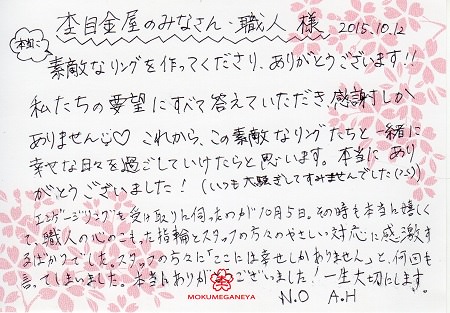 杢目金屋のみなさん・職人 様 2015.10.12
本店ご
素敵なリングを作ってくださり、ありがとうございます!!
私たちの要望にすべて答えていただき、感謝しか
ありません♡ これから、この素敵なリングたちと一緒に
幸せな日々を過ごしていけたらと思います。本当にあり
がとうございました! (いつも大騒ぎしてすみませんでした(>_<))
エンゲージリングを受け取りに伺ったのが10月5日。その時も本当に嬉しく
て、職人の心のこもった指輪とスタッフの方々のやさしい対応に感激す
るばかりでした。スタッフの方々に「ここには幸せしかありません」と、何回も
言ってしまいました。本当にありがとうございました!一生大切にします。
MOKUMEGANEYA
N.O A.H